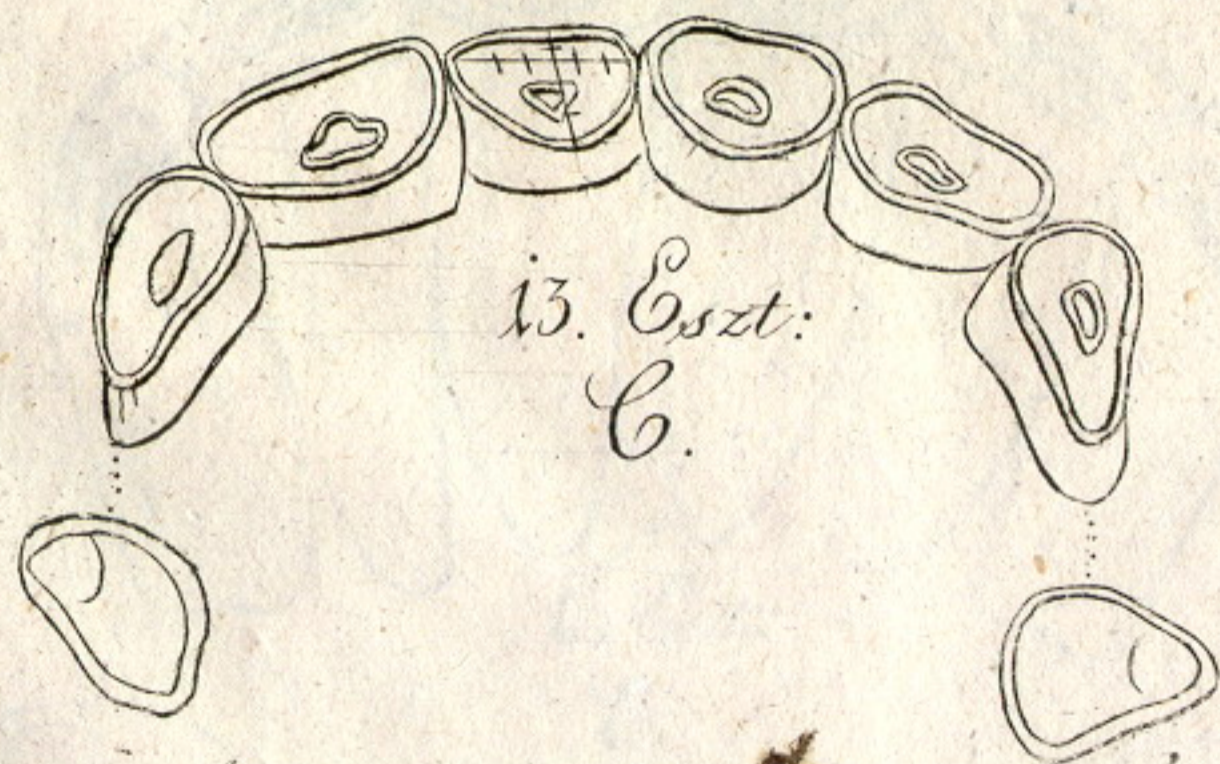 13. Eszt:
C.